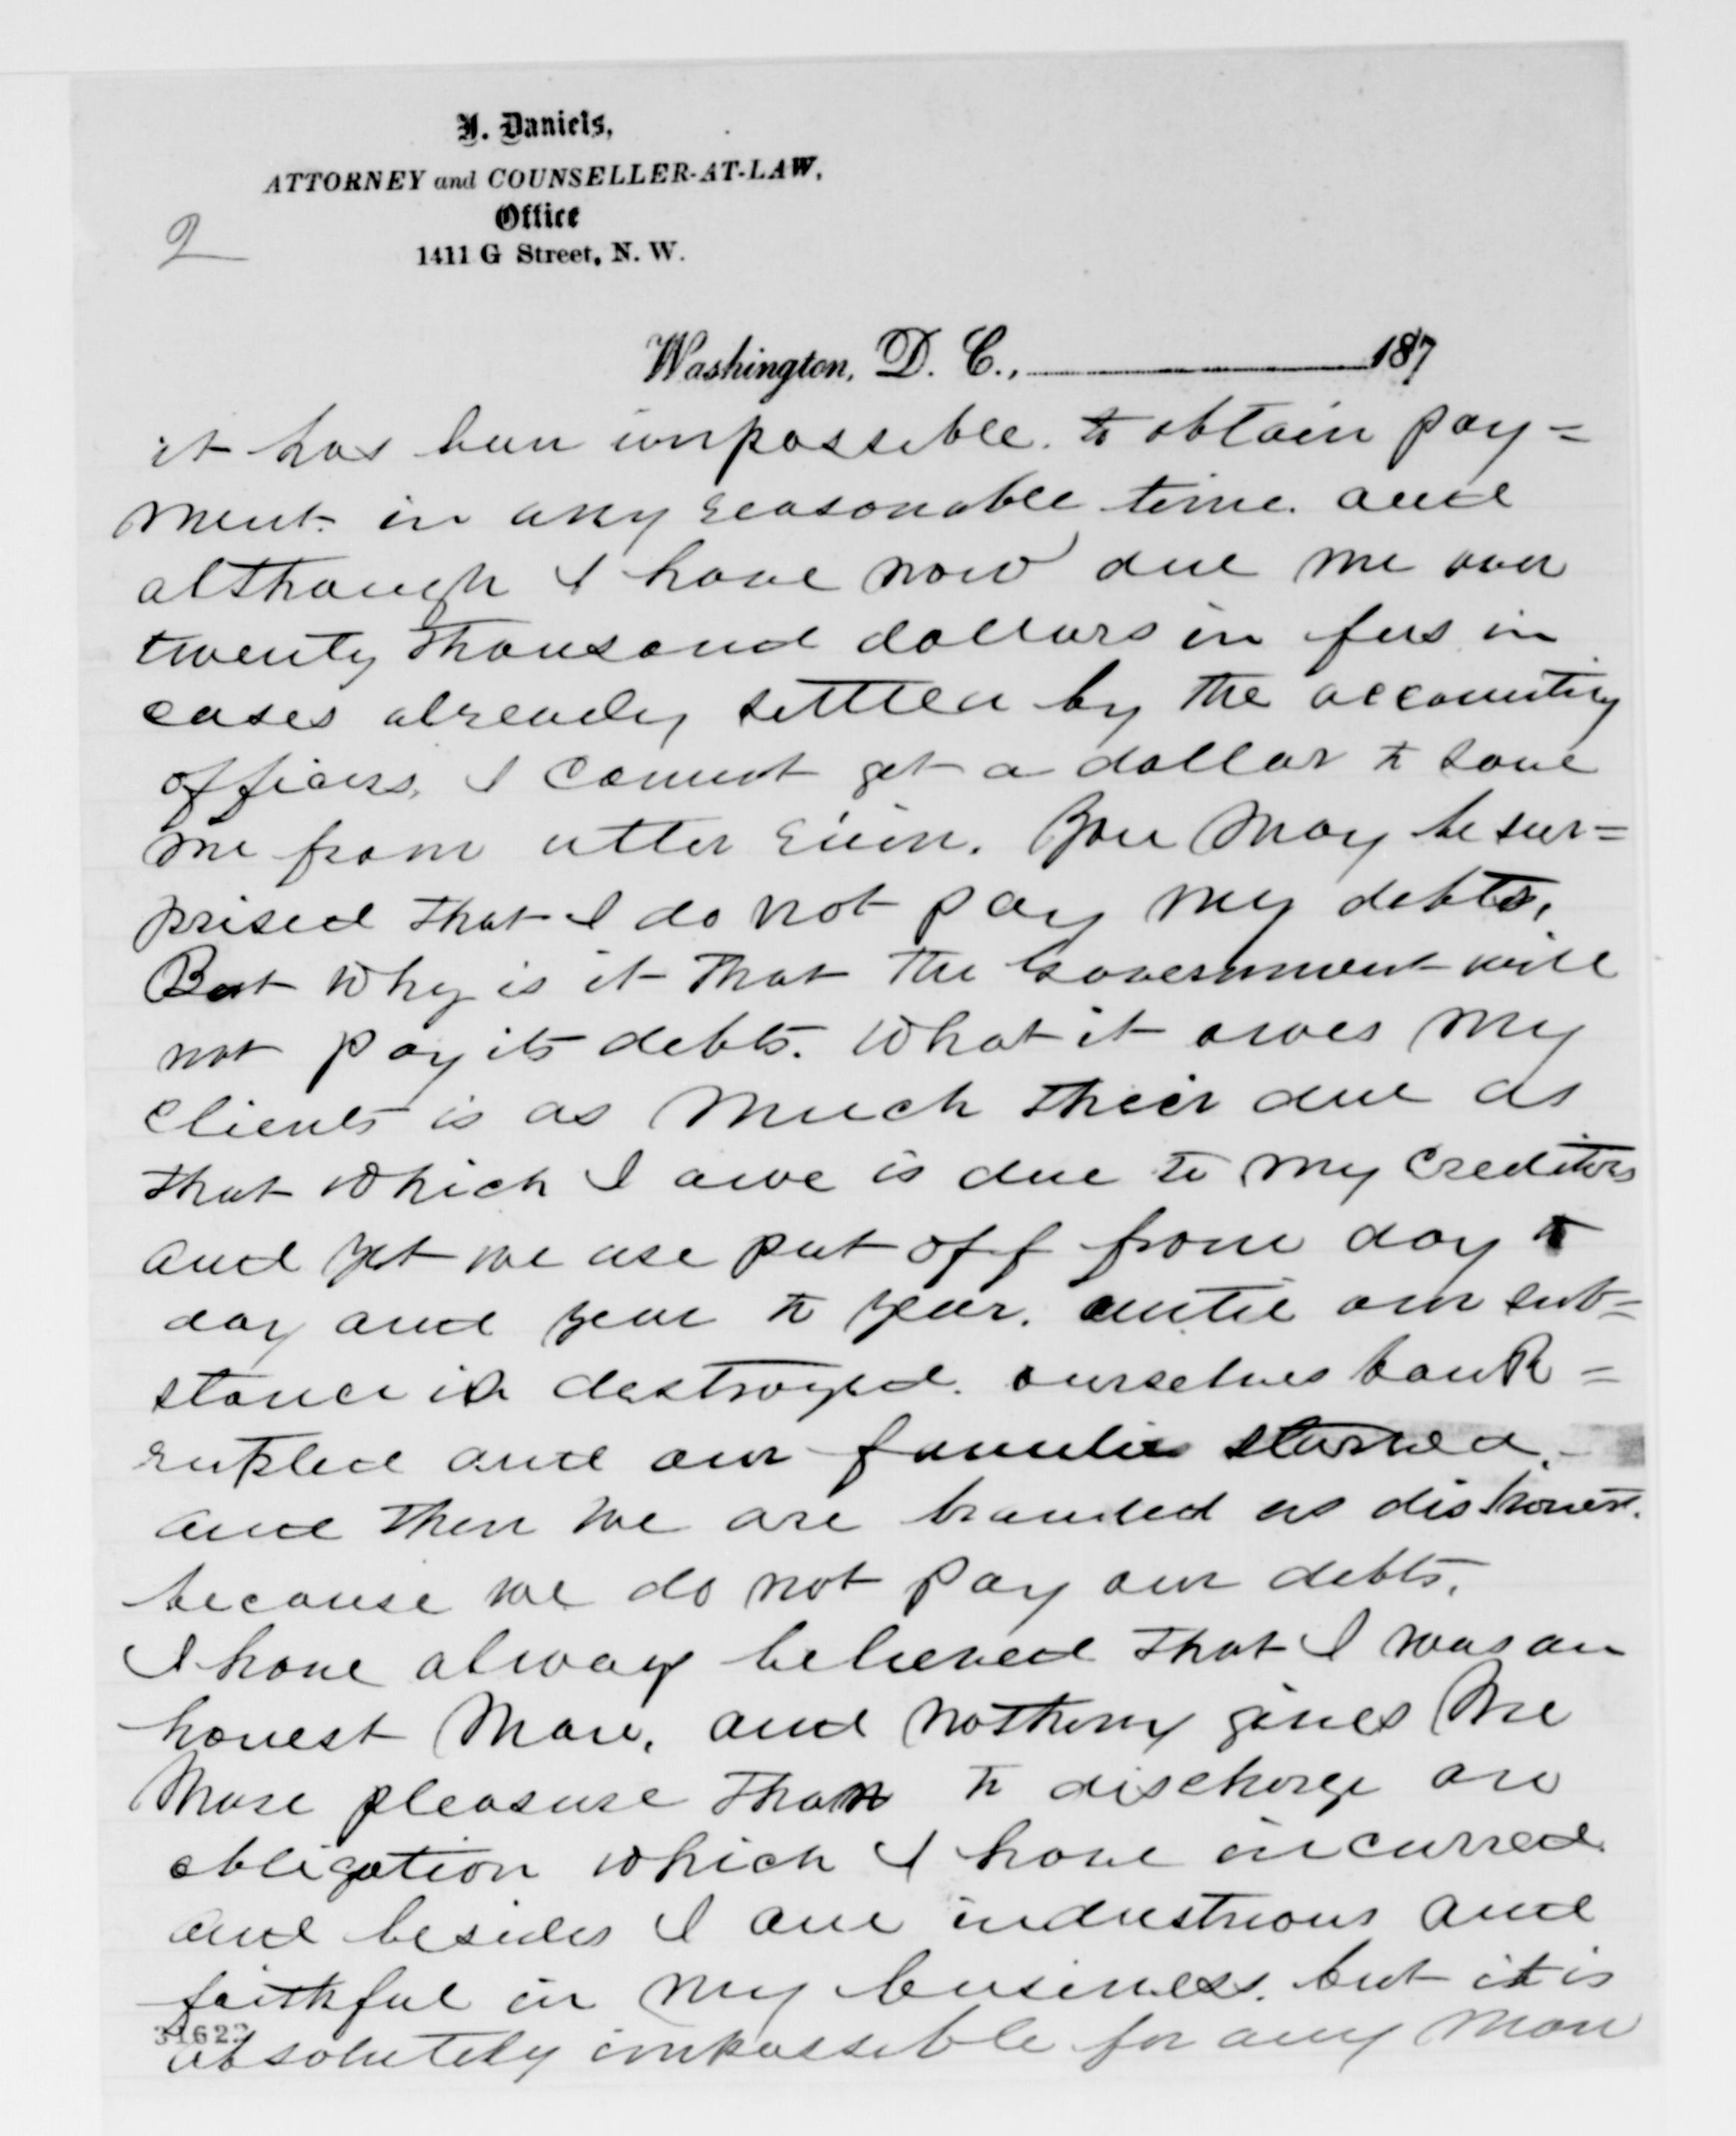 Y. Daniels,
ATTORNEY and COUNSELLER-AT-LAW,
Office
1411 G Street, N. W.
2
Washington, D. C., 187
it has been impossible. to obtain pay=
ment. in any reasonable time. and
although I have now due me over
twenty thousand dollars in fees in
cases already settled by the accounting
officers, I cannot get a dollar to save
me from utter ruin. You may be sur=
prised that I do not pay my debts,
But why is it that the Government will
not pay its debts. What it owes my
clients is as much their due as
that which I owe is due to my creditors
and yet we are put off from day to
day and year to year. until our sub=
stance is destroyed. ourselves bank=
rupted and our families starved.
and then we are branded as dishonest.
because we do not pay our debts.
I have always believed that I was an
honest man, and nothing gives me
more pleasure than to discharge an
obligation which I have incurred.
and besides I am industrious and
faithful in my business. but it is
absolutely impossible for any man